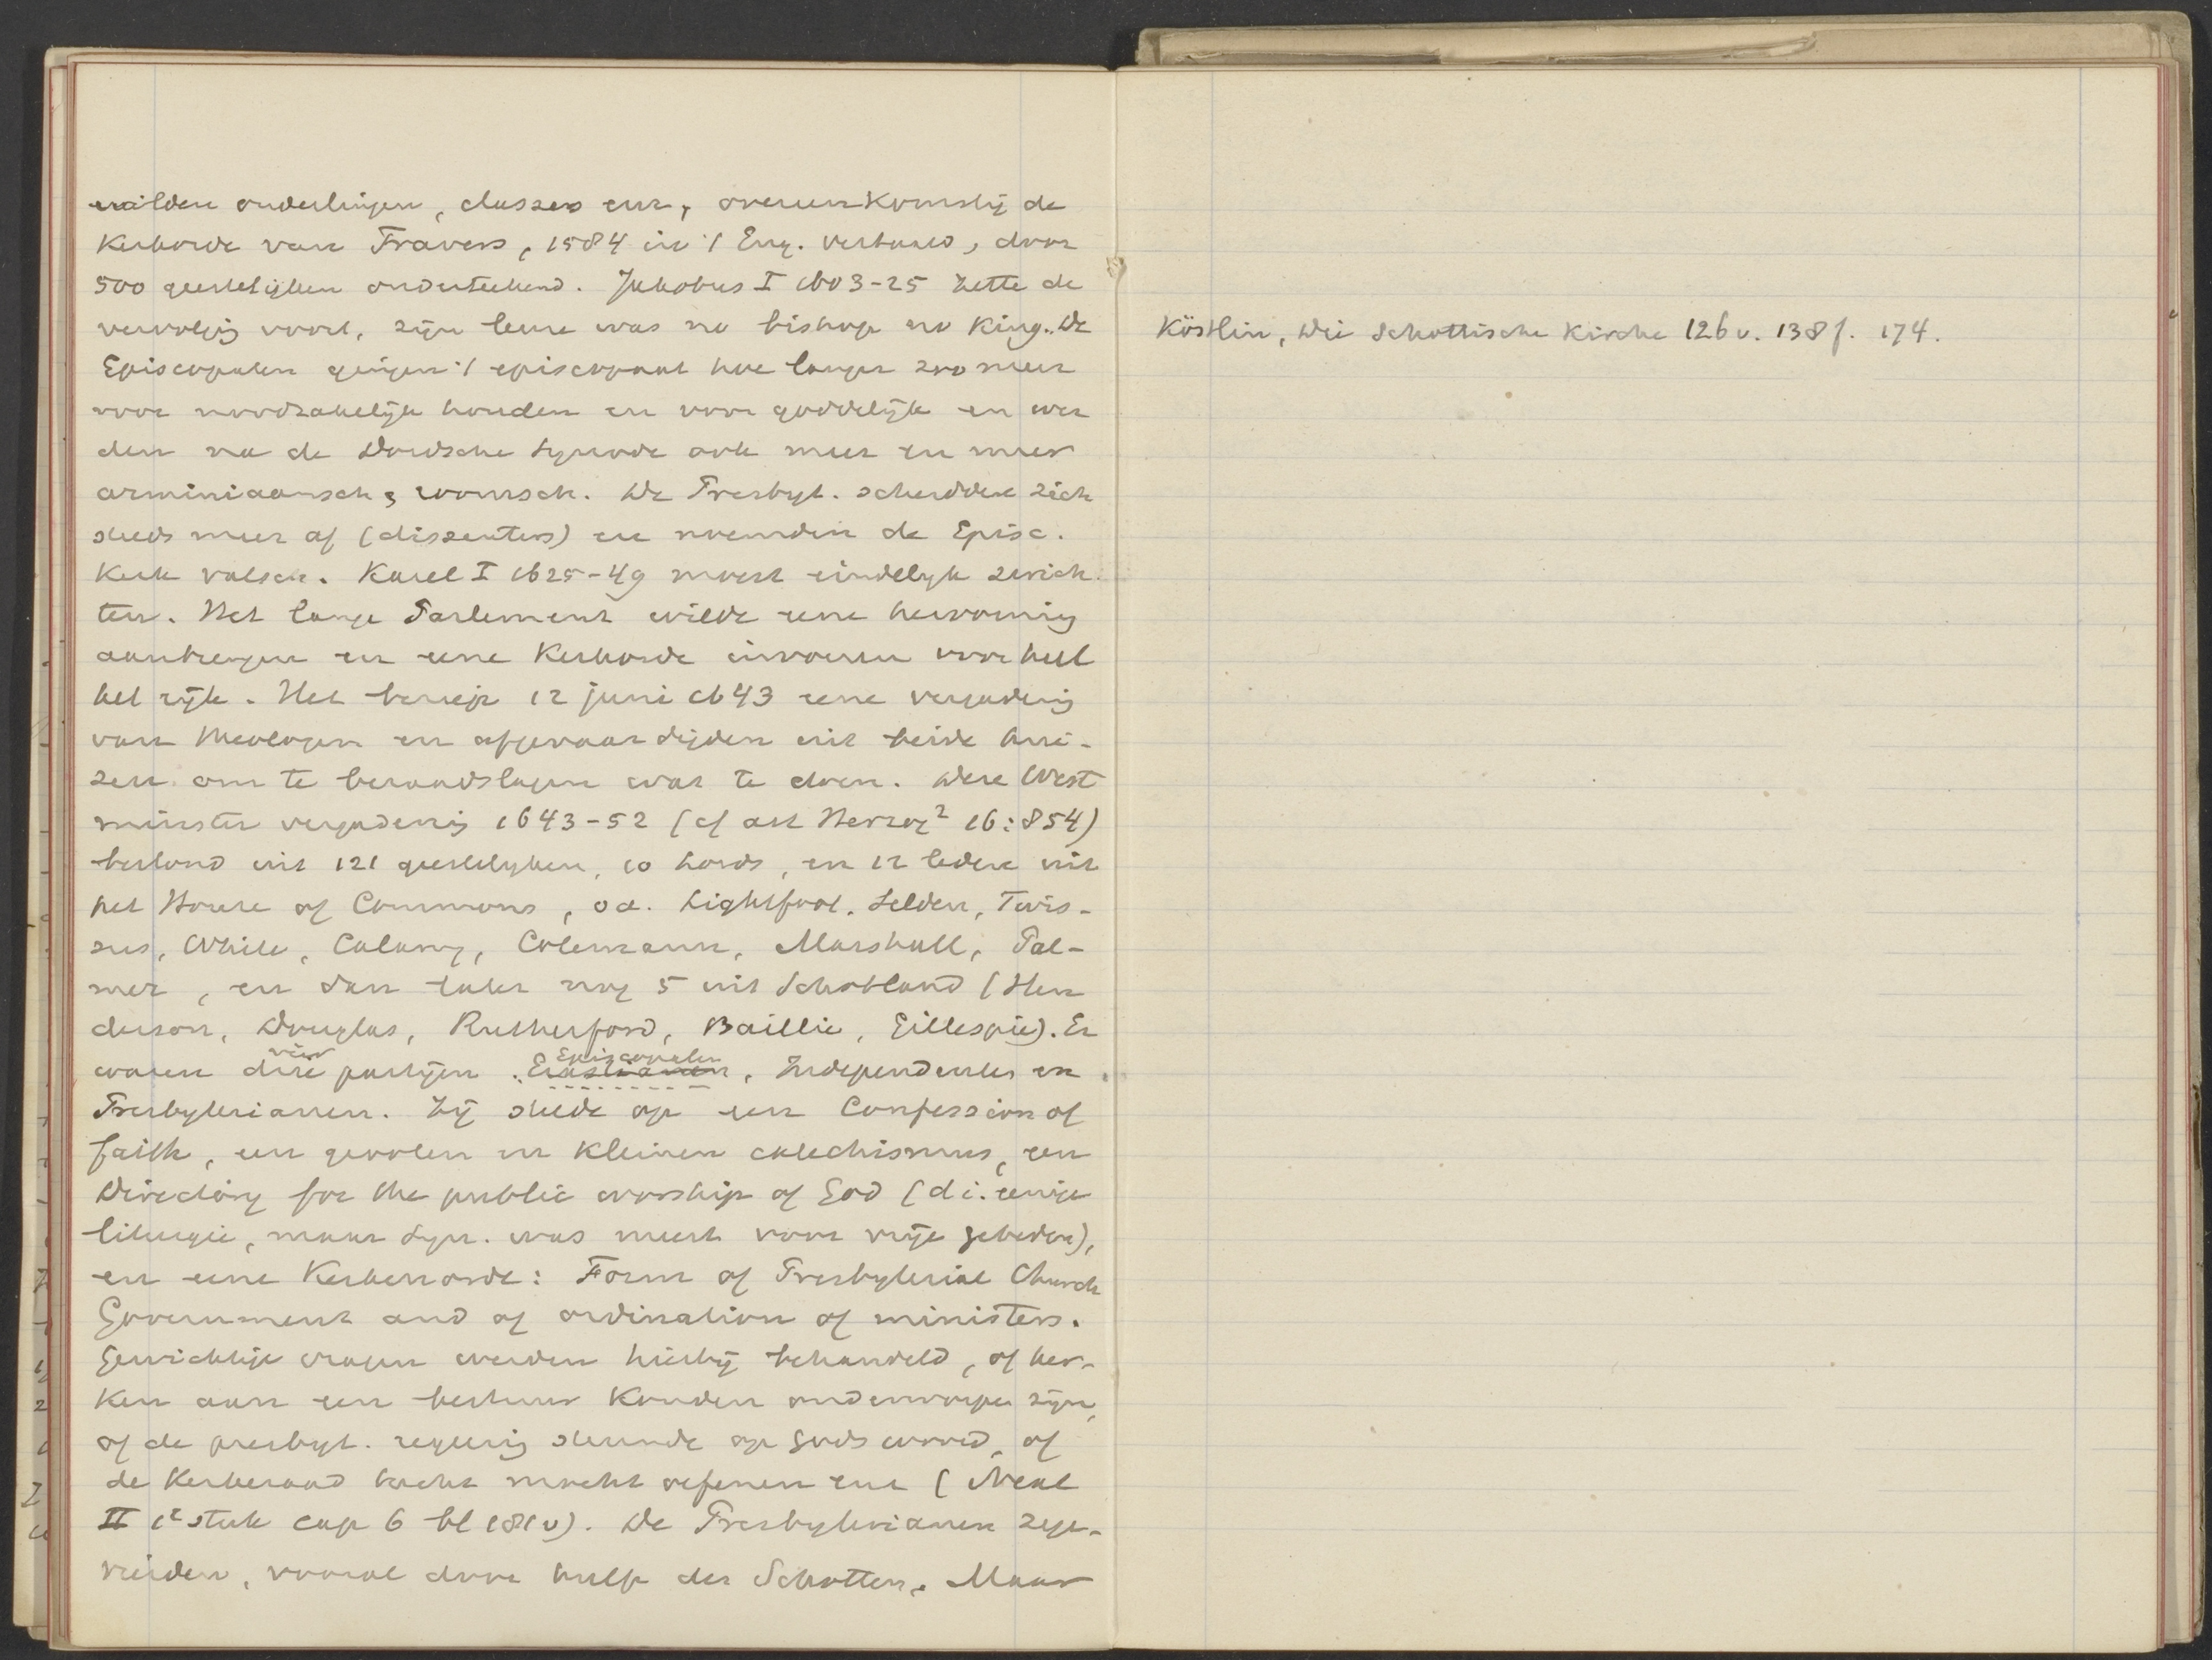 wilden ouderlingen, classes enz, overeenkomstig de
Kerkorde van Travers, 1584 in 't Eng. vertaald, door
500 geestelijken onderteekend. Jakobus I 1603-25 zette de
vervolgg voort, zijn leus was no bishop no King. De
Episcopalen gingen 't episcopaat hoe langer zoo meer
voor noodzakelijk houden en voor goddelijk en wer
den na de Dordsche Synode ook meer en meer
arminiaansch, roomsch. De Presbyt. scheidden zich
steeds meer af (dissenters) en noemden de Episc.
Kerk valsch. Karel I 1625-49 moest eindelijk zwich
ten. Het lange Parlement wilde eene hervorming
aanbrengen en eene Kerkorde invoeren voor heel
het rijk. Het beriep 12 juni 1643 eene vergaderig
van theologen en afgevaardigden uit beide hui-
zen om te beraadslagen wat te doen. Deze West
minster vergaderig 1643-52 (cf art Herzog² 16:854)
bestond uit 121 geestelijken, 10 Lords, en 12 leden uit
het House of Commons, o.a. Lightfoot. Selden, Twis-
sus, White, Calamy, Colemann, Marshall, Pal-
mer, en dan later nog 5 uit Schotland (Hen
derson, Douglas, Rutherford, Baillie, Gillespie). Er
vier Episcopalen
waren drie partijen. Erastianen, Independenten en
Presbyterianen. Zij stelde op een Confession of
faith, een grooten en kleinen catechismus, een
Directory for the public worship of God (d.i. eenige
liturgie, maar Syn. was meest voor vrije gebeden),
en eene Kerkenorde: Form of Presbyterial Church
Government and of ordination of ministers.
Gewichtige vragen werden hierbij behandeld, of ker-
ken aan een bestuur konden onderworpen zijn,
of de presbyt. regeerig steunde op Gods woord, of
de Kerkeraad tucht mocht oefenen enz (Neal
II 1e stuk cap 6 bl 181v). De Presbyterianen zege-
vierden, vooral door hulp der Schotten. Maar
Köstlin, Die Schottische Kirche 126v. 138f. 174.